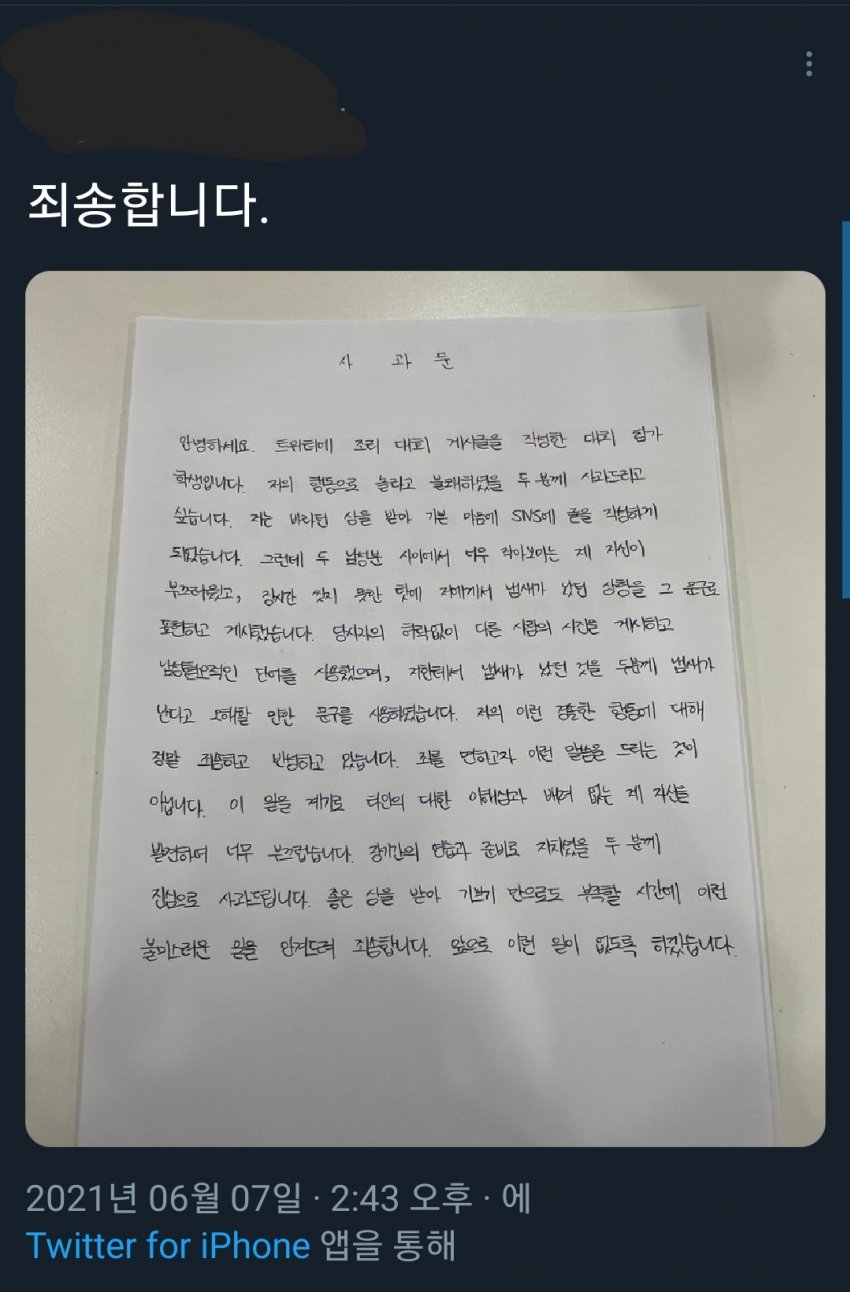 죄송합니다.
사 과 문
안녕하세요. 트위터에 조리 대회 게시글을 작성한 대회 참가
학생입니다. 저의 행동으로 놀라고 불쾌하였을 두 분께 사과드리고
싶습니다. 저는 바라던 상을 받아 기쁜 마음에 SNS에 글을 작성하게
되었습니다. 그런데 두 남성분 사이에서 너무 작아보이는 제 자신이
부끄러웠고, 장시간 씻지 못한 탓에 저에게서 냄새가 났던 상황을 그 문구로
표현하고 게시했습니다. 당사자의 허락없이 다른 사람의 사진을 게시하고
남성혐오적인 단어를 사용했으며, 저한테서 냄새가 났던 것을 두분께 냄새가
난다고 오해할 만한 문구를 사용하였습니다. 저의 이런 경솔한 행동에 대해
정말 죄송하고 반성하고 있습니다. 죄를 면하고자 이런 말씀을 드리는 것이
아닙니다. 이 일을 계기로 타인의 대한 이해심과 배려 없는 제 자신을
발견하며 너무 부끄럽습니다. 장기간의 연습과 준비로 지치였을 두 분께
진심으로 사과드립니다. 좋은 상을 받아 기쁘기 만으로도 부족할 시간에 이런
불미스러운 일을 안겨드려 죄송합니다. 앞으로 이런 일이 없도록 하겠습니다.
2021년 06월 07일 · 2:43 오후 · 에
Twitter for iPhone 앱을 통해